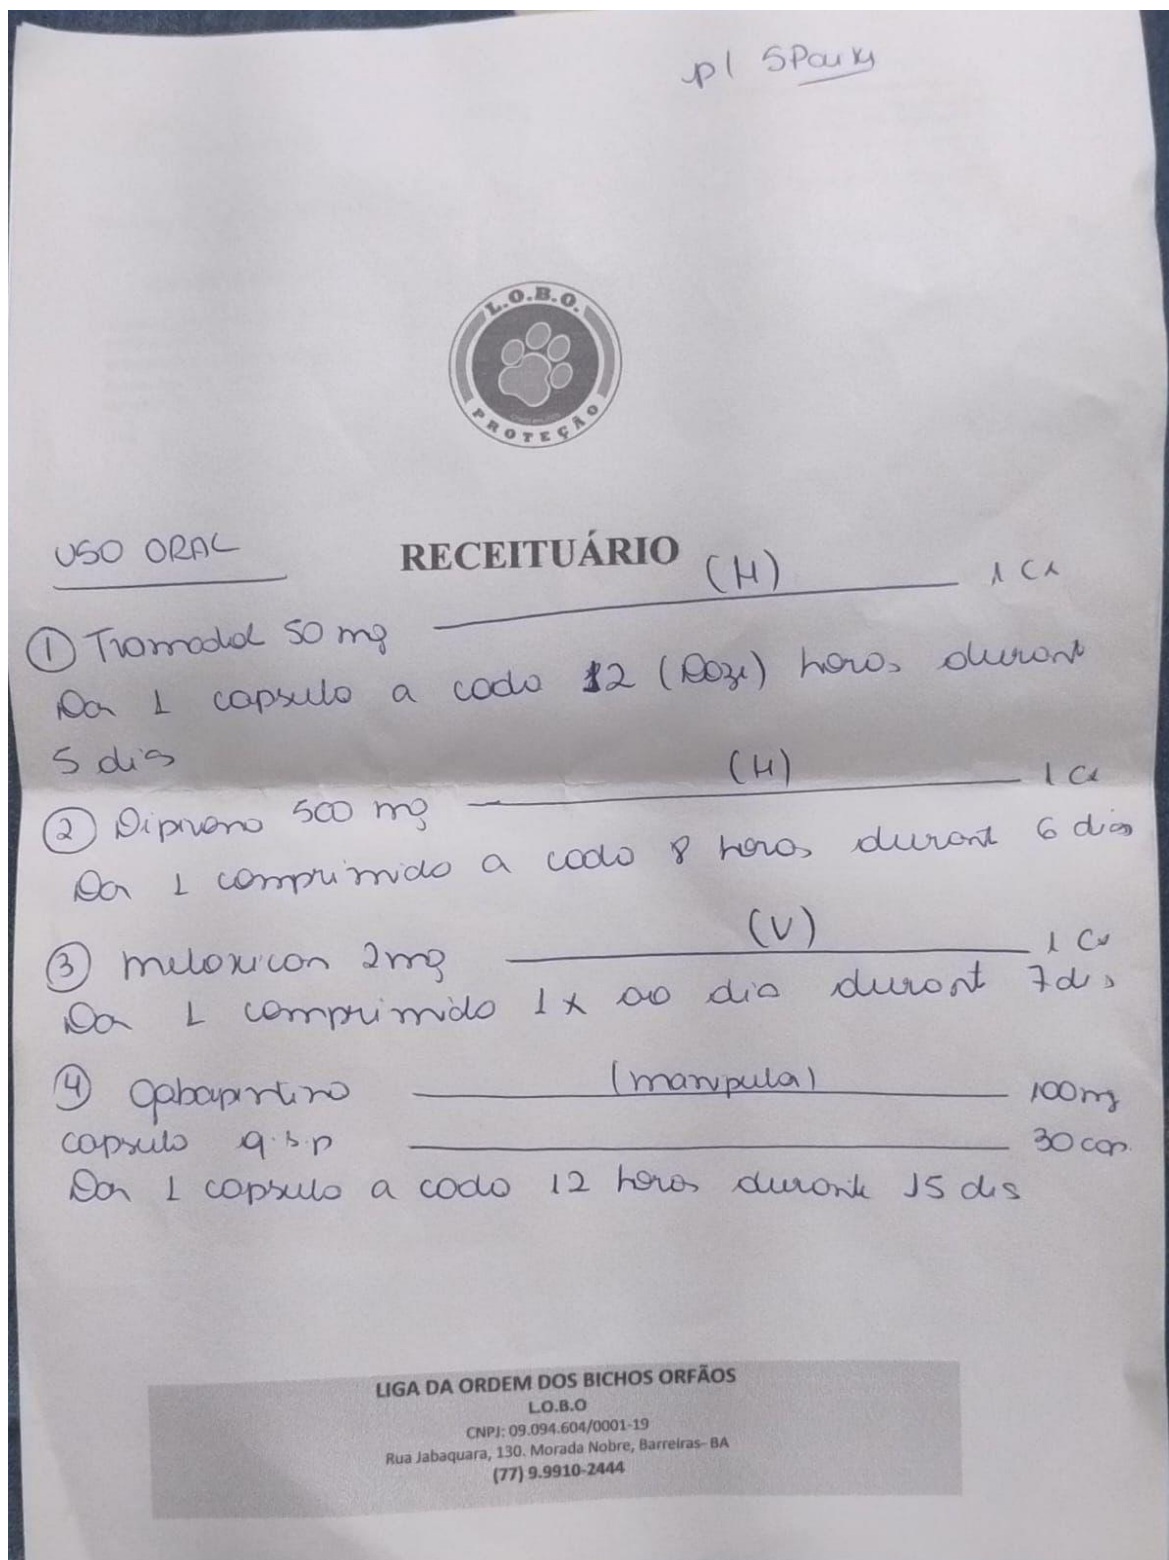 p/ Sparky
L.O.B.O.
PROTEÇÃO
USO ORAL
RECEITUÁRIO
(H) 1 Cx
① Tramadol 50 mg
Dar 1 capsula a cada 12 (Doze) horas durant
5 dias
(H) 1 Cx
② Dipirona 500 mg
Dar 1 comprimido a cada 8 horas durant 6 dias
(V) 1 Cx
③ meloxican 2mg
Dar 1 comprimido 1x ao dia durant 7 dis
④ gabapintina (manipular) 100mg
capsula q.s.p 30 cap.
Dar 1 capsula a cada 12 horas durante 15 dis
LIGA DA ORDEM DOS BICHOS ORFÃOS
L.O.B.O
CNPJ: 09.094.604/0001-19
Rua Jabaquara, 130. Morada Nobre, Barreiras- BA
(77) 9.9910-2444